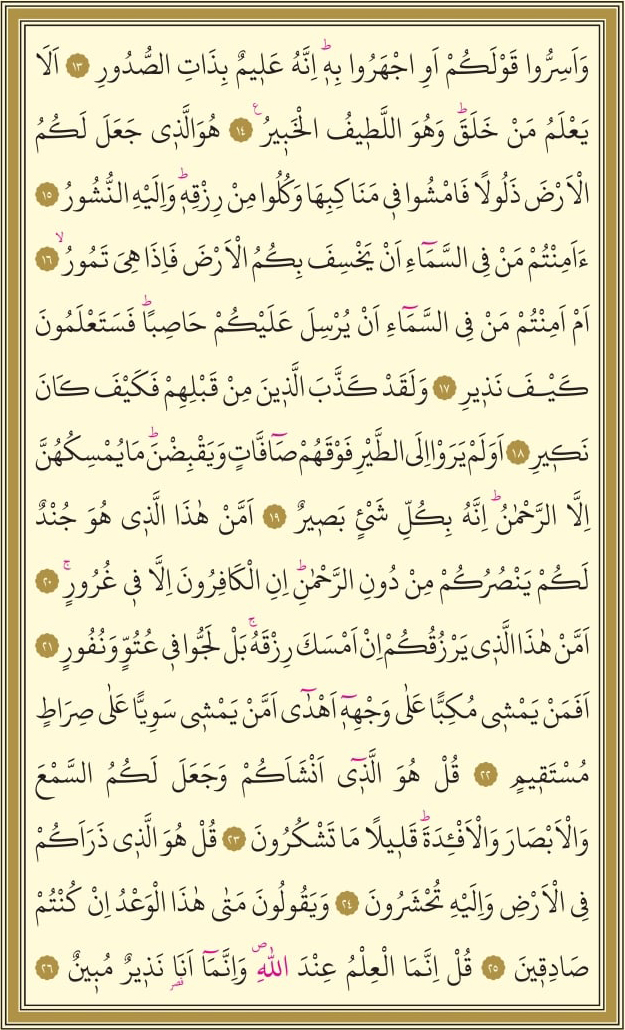 وَاَسِرُّوا قَوْلَكُمْ اَوِ اجْهَرُوا بِهٖۜ اِنَّهُ عَلٖيمٌ بِذَاتِ الصُّدُورِ ﴿١٣﴾ اَلَا
يَعْلَمُ مَنْ خَلَقَۜ وَهُوَ اللَّطٖيفُ الْخَبٖيرُ ﴿١٤﴾ هُوَ الَّذٖى جَعَلَ لَكُمُ
الْاَرْضَ ذَلُولًا فَامْشُوا فٖى مَنَاكِبِهَا وَكُلُوا مِنْ رِزْقِهٖۜ وَاِلَيْهِ النُّشُورُ ﴿١٥﴾
ءَاَمِنْتُمْ مَنْ فِى السَّمَٓاءِ اَنْ يَخْسِفَ بِكُمُ الْاَرْضَ فَاِذَا هِىَ تَمُورُۙ ﴿١٦﴾
اَمْ اَمِنْتُمْ مَنْ فِى السَّمَٓاءِ اَنْ يُرْسِلَ عَلَيْكُمْ حَاصِبًاۜ فَسَتَعْلَمُونَ
كَيْفَ نَذٖيرِ ﴿١٧﴾ وَلَقَدْ كَذَّبَ الَّذٖينَ مِنْ قَبْلِهِمْ فَكَيْفَ كَانَ
نَكٖيرِ ﴿١٨﴾ اَوَلَمْ يَرَوْا اِلَى الطَّيْرِ فَوْقَهُمْ صَٓافَّاتٍ وَيَقْبِضْنَۜ مَا يُمْسِكُهُنَّ
اِلَّا الرَّحْمٰنُۜ اِنَّهُ بِكُلِّ شَىْءٍ بَصٖيرٌ ﴿١٩﴾ اَمَّنْ هٰذَا الَّذٖى هُوَ جُنْدٌ
لَكُمْ يَنْصُرُكُمْ مِنْ دُونِ الرَّحْمٰنِۜ اِنِ الْكَافِرُونَ اِلَّا فٖى غُرُورٍۚ ﴿٢٠﴾
اَمَّنْ هٰذَا الَّذٖى يَرْزُقُكُمْ اِنْ اَمْسَكَ رِزْقَهُۚ بَلْ لَجُّوا فٖى عُتُوٍّ وَنُفُورٍ ﴿٢١﴾
اَفَمَنْ يَمْشٖى مُكِبًّا عَلٰى وَجْهِهٖٓ اَهْدٰٓى اَمَّنْ يَمْشٖى سَوِيًّا عَلٰى صِرَاطٍ
مُسْتَقٖيمٍ ﴿٢٢﴾ قُلْ هُوَ الَّذٖٓى اَنْشَاَكُمْ وَجَعَلَ لَكُمُ السَّمْعَ
وَالْاَبْصَارَ وَالْاَفْـِٔدَةَۜ قَلٖيلًا مَا تَشْكُرُونَ ﴿٢٣﴾ قُلْ هُوَ الَّذٖى ذَرَاَكُمْ
فِى الْاَرْضِ وَاِلَيْهِ تُحْشَرُونَ ﴿٢٤﴾ وَيَقُولُونَ مَتٰى هٰذَا الْوَعْدُ اِنْ كُنْتُمْ
صَادِقٖينَ ﴿٢٥﴾ قُلْ اِنَّمَا الْعِلْمُ عِنْدَ اللّٰهِࣕ وَاِنَّمَٓا اَنَا۬ نَذٖيرٌ مُبٖينٌ ﴿٢٦﴾